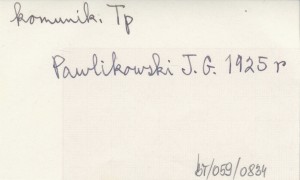 komunik. Tp
Pawlikowski J. G. 1925 r
bt/059/0834